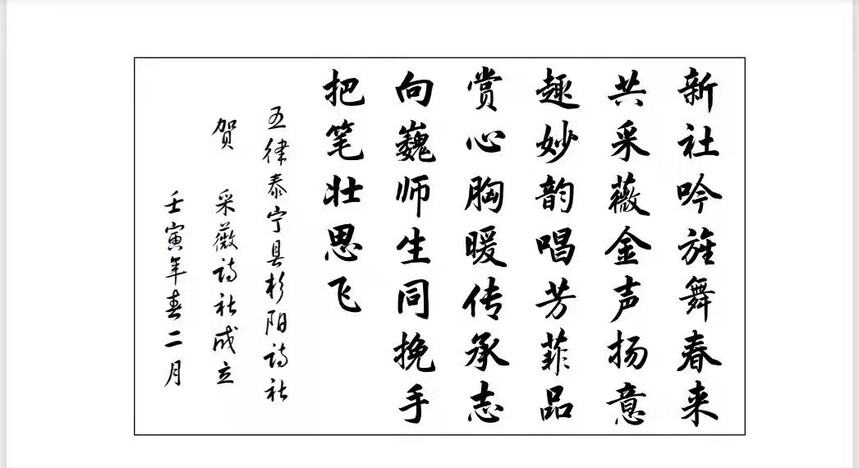 新社吟旌舞春来
共采薇金声扬意
趣妙韵唱芳菲品
赏心胸暖传承志
向巍师生同挽手
把笔壮思飞
五律泰宁县杉阳诗社
贺 采薇诗社成立
壬寅年春二月